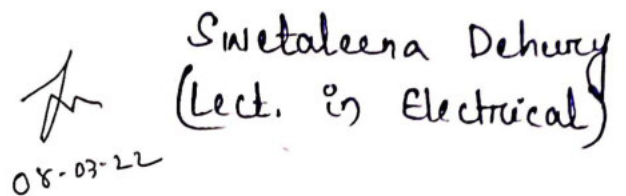 Swetaleena Dehury
(Lect. in Electrical)
08-03-22